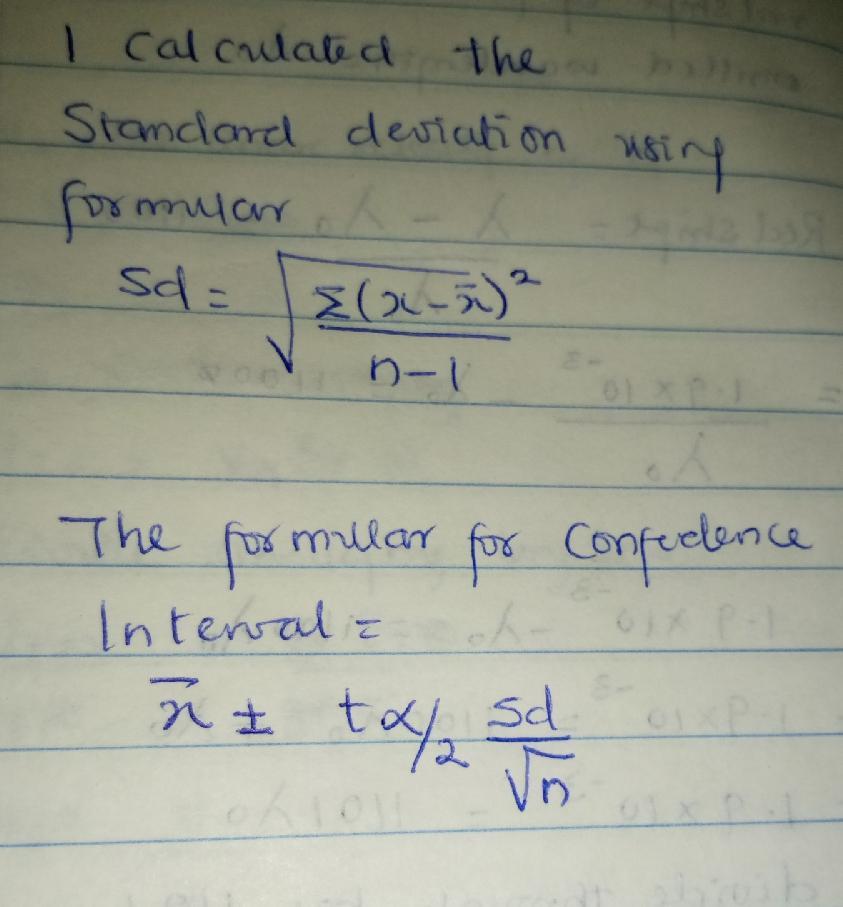 I Calculated the
Standard deviation using
formular
Sd = √(Σ(x-x̄)² / n-1)
The formular for Confedence
Interval =
x̄ ± tα/2 Sd/√n